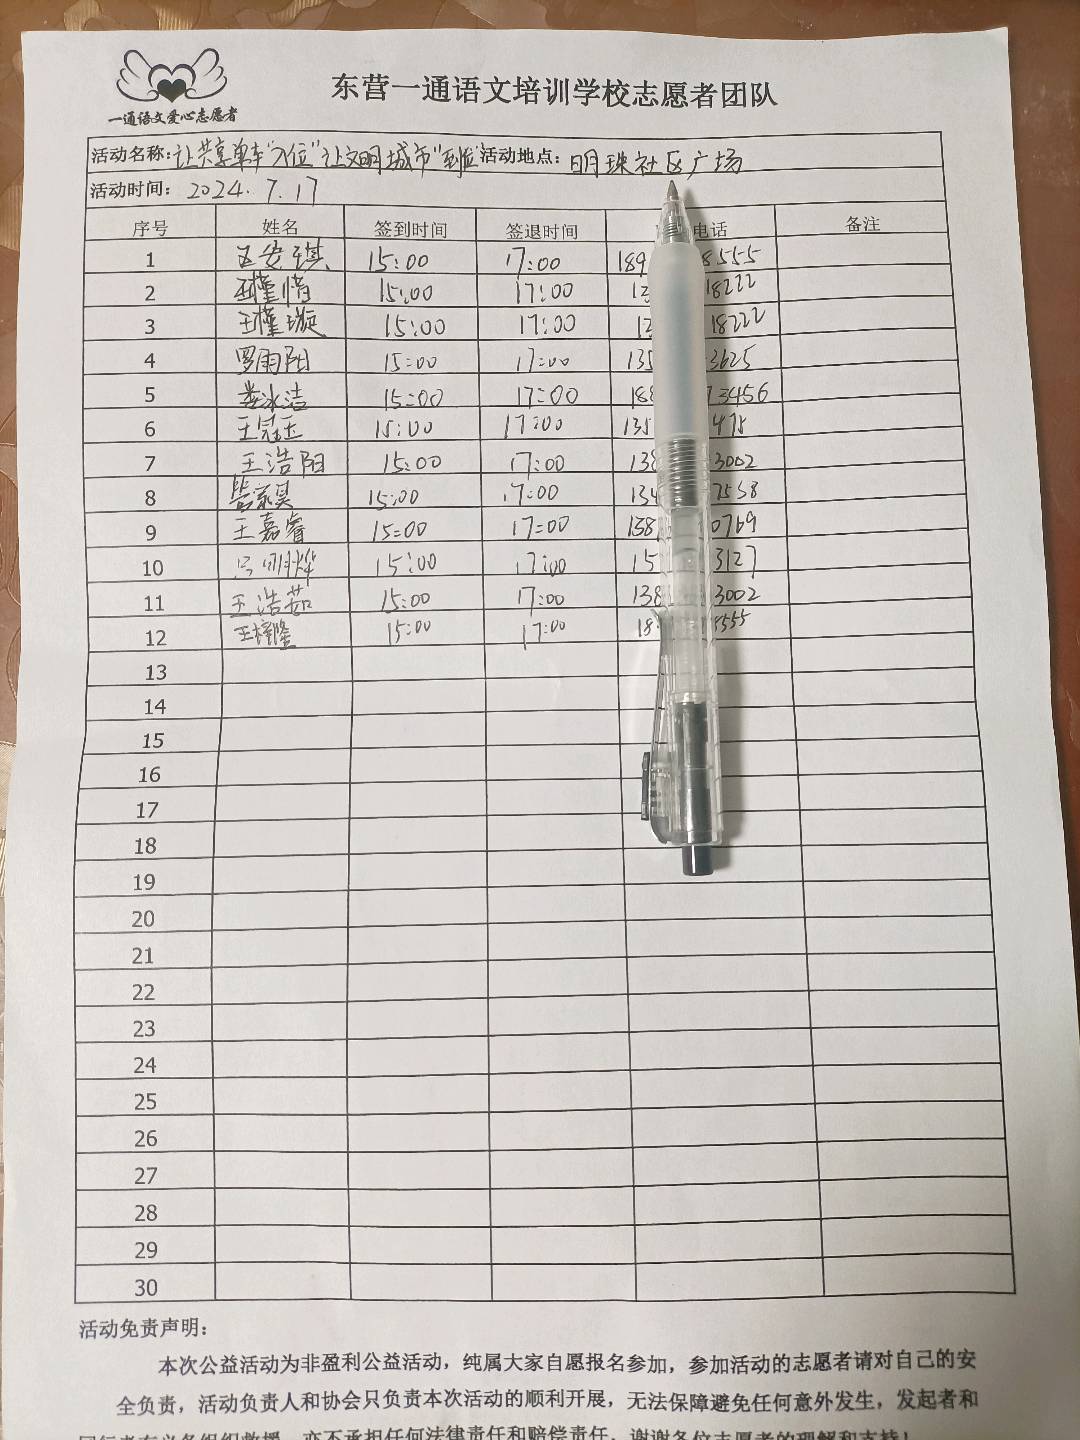 一通语文爱心志愿者
东营一通语文培训学校志愿者团队
活动名称：让共享单车"入位"让文明城市"到位" 活动地点：明珠社区广场
活动时间：2024.7.17
序号 姓名 签到时间 签退时间 电话 备注
1 15:00 17:00 189 8555
2 15:00 17:00 13 18222
3 王槿璇 15:00 17:00 18222
4 罗雨阳 15:00 17:00 135 3625
5 娄冰洁 15:00 17:00 188 3456
6 王冠玉 15:00 17:00 135 475
7 王浩阳 15:00 17:00 138 3002
8 15:00 17:00 134 7558
9 王嘉睿 15:00 17:00 1381 0769
10 15:00 17:00 15 3127
11 王浩茹 15:00 17:00 138 3002
12 王梓隆 15:00 17:00 18 5555
13
14
15
16
17
18
19
20
21
22
23
24
25
26
27
28
29
30
活动免责声明：
本次公益活动为非盈利公益活动，纯属大家自愿报名参加，参加活动的志愿者请对自己的安
全负责，活动负责人和协会只负责本次活动的顺利开展，无法保障避免任何意外发生，发起者和
同行者有义务组织救援，亦不承担任何法律责任和赔偿责任，谢谢各位志愿者的理解和支持！